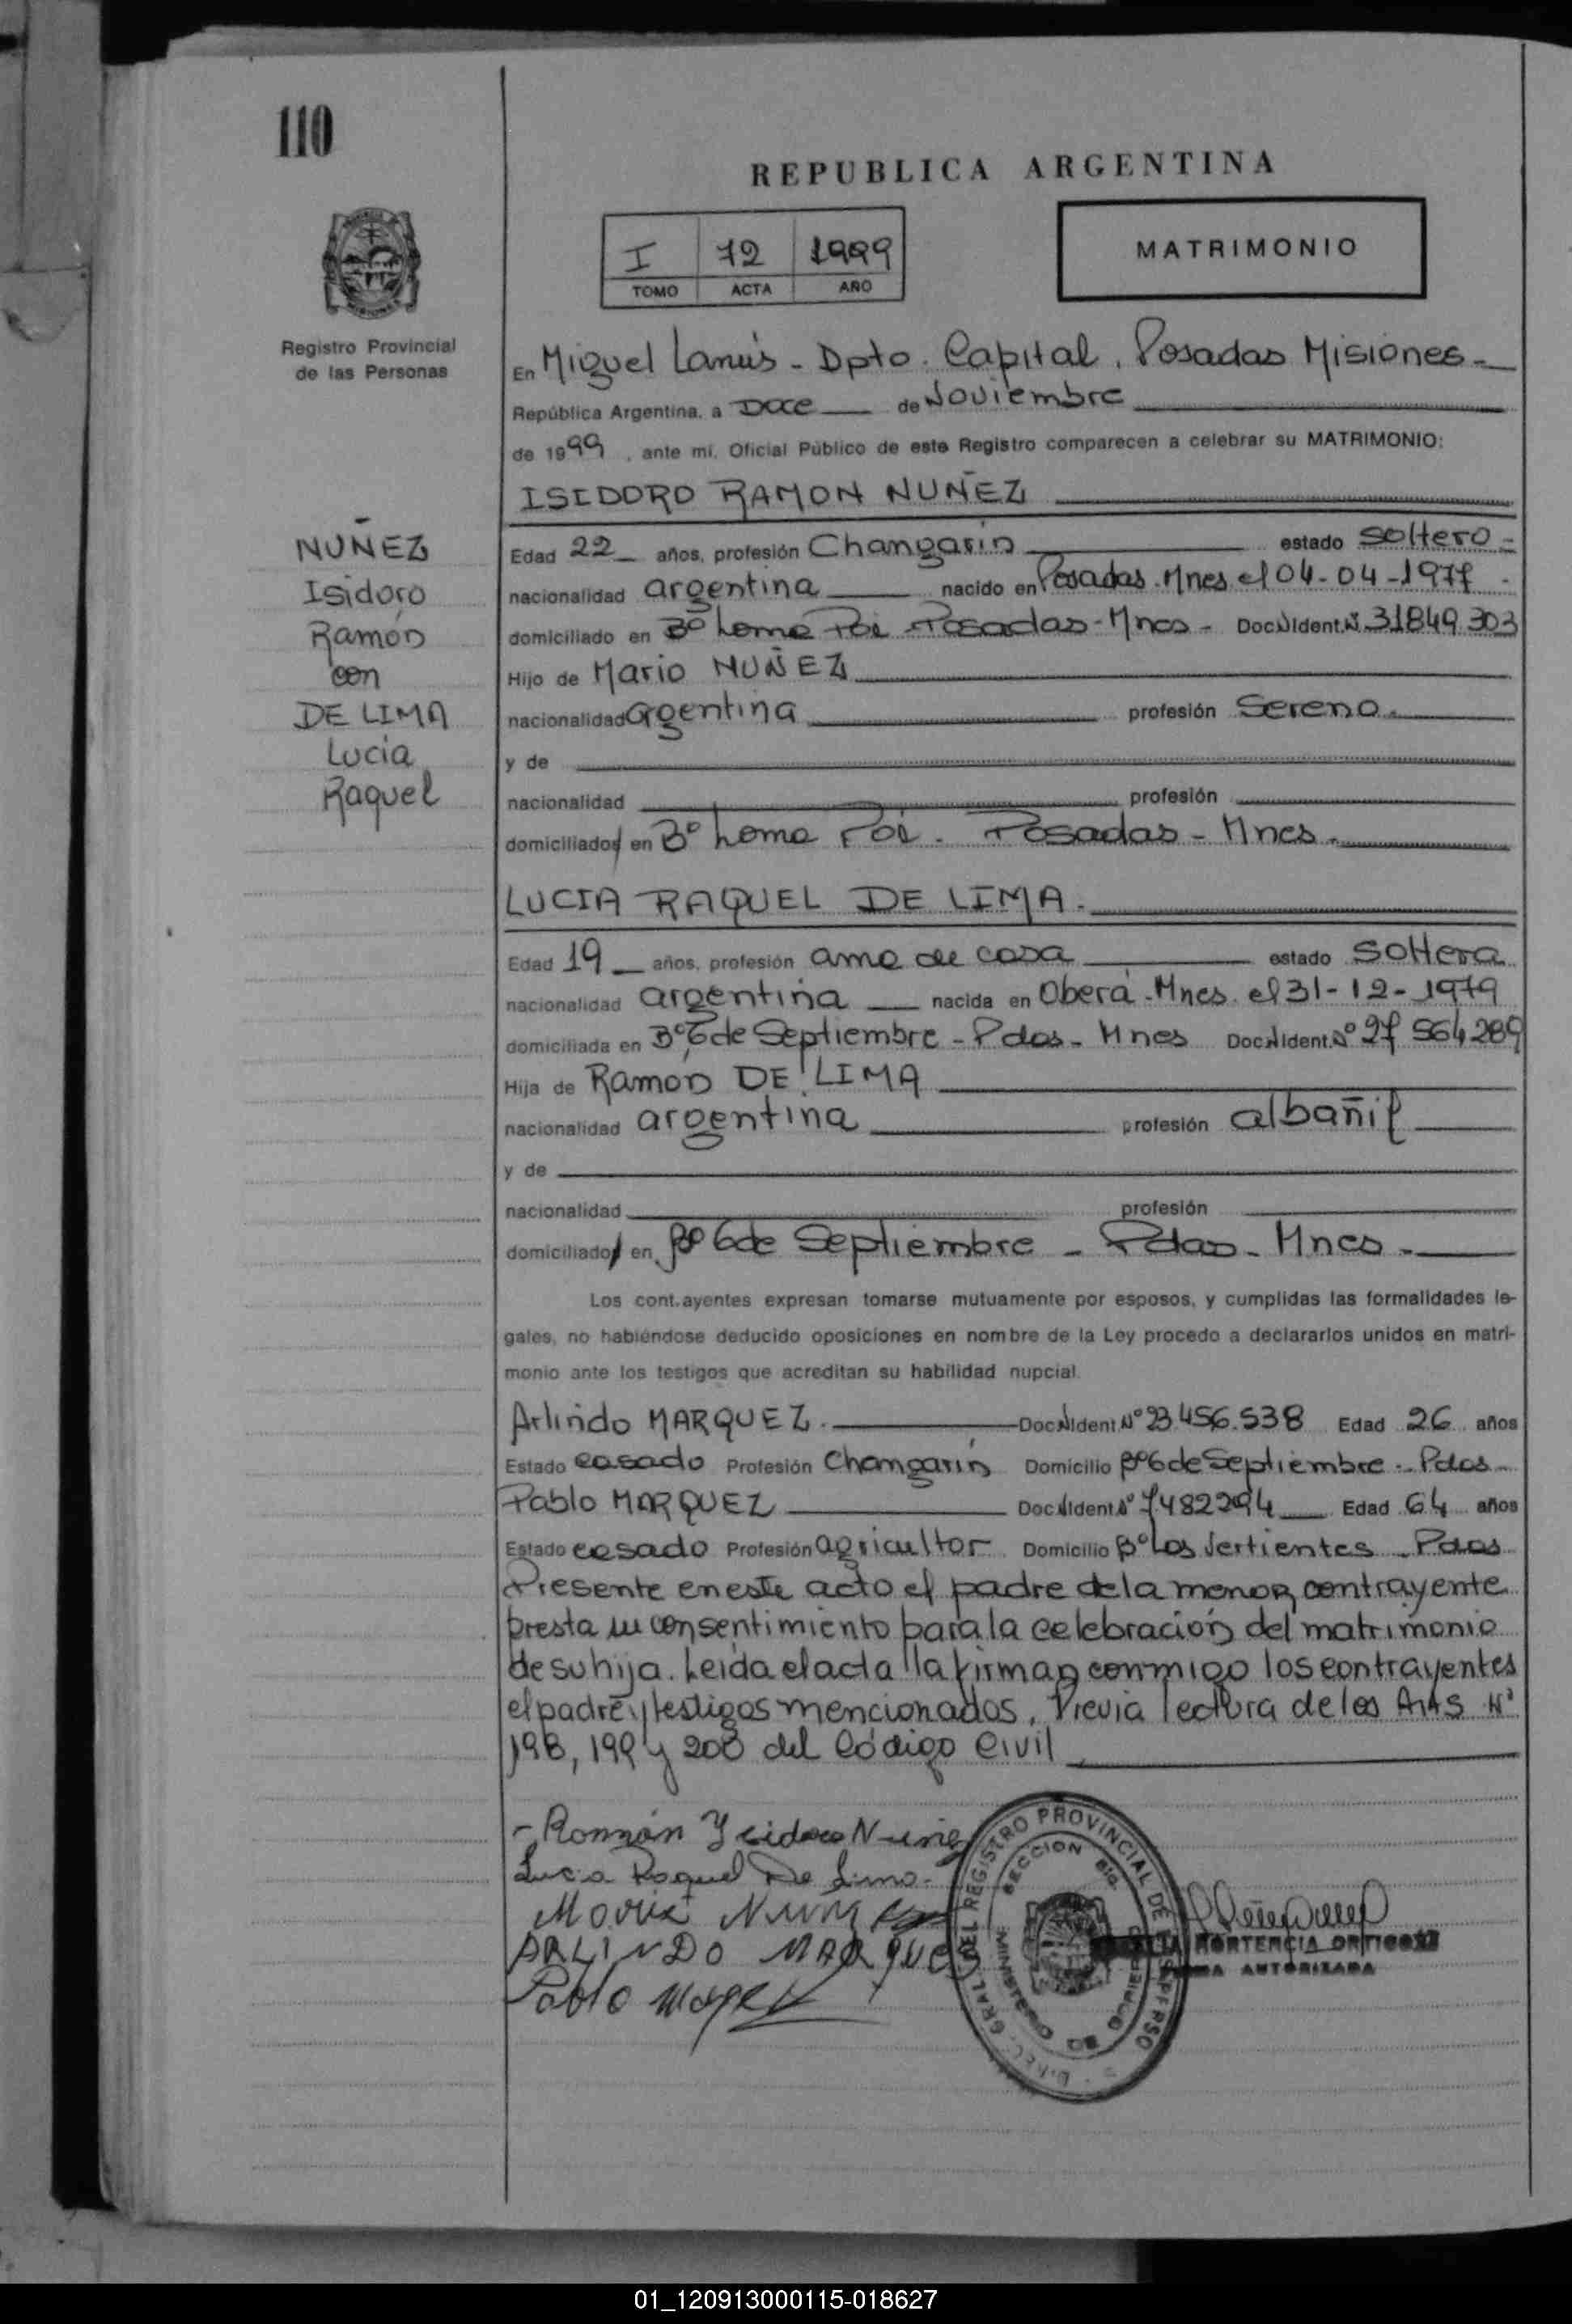 110
REPUBLICA ARGENTINA
I 72 1999
TOMO ACTA AÑO
MATRIMONIO
Registro Provincial
de las Personas
En Miguel Lanús - Dpto. Capital. Posadas Misiones -
República Argentina, a Doce de Noviembre
de 1999, ante mí, Oficial Público de este Registro comparecen a celebrar su MATRIMONIO:
ISIDORO RAMON NUÑEZ
NUÑEZ
Isidoro
Ramón
con
DE LIMA
Lucia
Raquel
Edad 22 años, profesión Changarín estado soltero -
nacionalidad argentina nacido en Posadas - Mnes el 04-04-1977 -
domiciliado en Bº Loma Poi - Posadas - Mnes - Doc. Ident. Nº 31849.303
Hijo de Mario NUÑEZ
nacionalidad agentina profesión Sereno.
y de
nacionalidad profesión
domiciliados en Bº Loma Poi. Posadas - Mnes.
LUCIA RAQUEL DE LIMA.
Edad 19 años, profesión ama de casa estado soltera
nacionalidad argentina nacida en Oberá - Mnes. el 31-12-1979
domiciliada en Bº 6 de Septiembre - Pdas - Mnes Doc. Ident. Nº 27 564 289
Hija de Ramon DE LIMA
nacionalidad argentina profesión albañil
y de
nacionalidad profesión
domiciliados en Bº 6 de Septiembre - Pdas - Mnes -
Los cont.ayentes expresan tomarse mutuamente por esposos, y cumplidas las formalidades le-
gales, no habiéndose deducido oposiciones en nombre de la Ley procedo a declararlos unidos en matri-
monio ante los testigos que acreditan su habilidad nupcial.
Arlindo MARQUEZ. Doc. Ident. Nº 23.456.538 Edad 26 años
Estado casado Profesión Changarín Domicilio Bº 6 de Septiembre - Pdas -
Pablo MARQUEZ Doc. Ident. Nº 7482294 Edad 64 años
Estado casado Profesión agricultor Domicilio Bº Las Vertientes - Pdas
Presente en este acto el padre de la menor contrayente
presta su consentimiento para la celebración del matrimonio
de su hija. Leida el acta lla firman conmigo los contrayentes
el padre y testigos mencionados, Previa lectura de los Arts Nº
198, 199 y 200 del Código Civil
- Román Ysidoro Nuñez
Lucia Raquel De Lima.
ARLINDO MARQUES
Pablo
REGISTRO PROVINCIAL DE
SECCION
HORTENCIA
AUTORIZADA
01_120913000115-018627